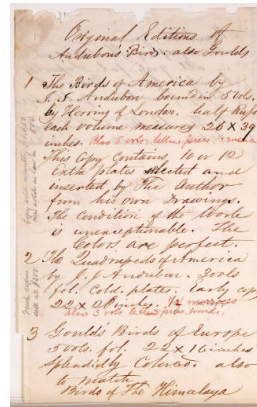 Original Editions of
Audubon's Birds: also Goulds
1 The Birds of America by
J. J. Audubon bound in 5 vols.
by Herring of London. half Russ
each volume measures 26 X 39
inches. Also 5 vols letter press
This Copy Contains 10 or 12
Extra plates selected and
inserted by The Author
from his own Drawings.
The Condition of the Work
is unexceptionable. The
Colors are perfect.
2 The Quadrupeds of America
by J. J. Audubon. 3 vols
fol. Cold. plates. Early copy
22 X 2 inches. 1/2 morocco
also 3 vols letter press bound.
3 Gould's Birds of Europe
5 vols. fol. 22 X 16 inches
Splendidly Colored. also
to match
Birds of The Himalaya